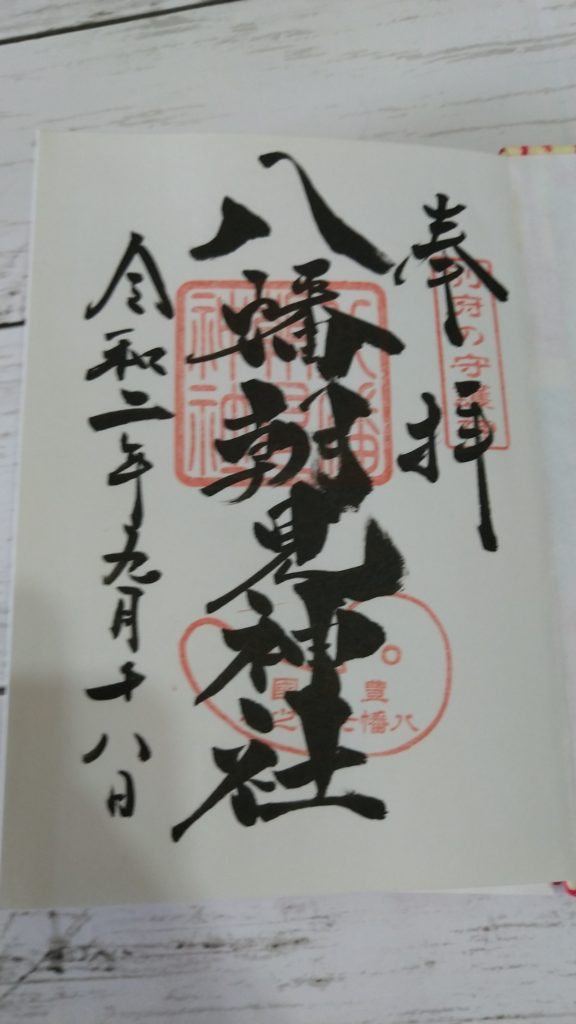 奉拝
別府の守護神
八幡朝見神社
令和二年九月十八日
豊
國
八幡
之